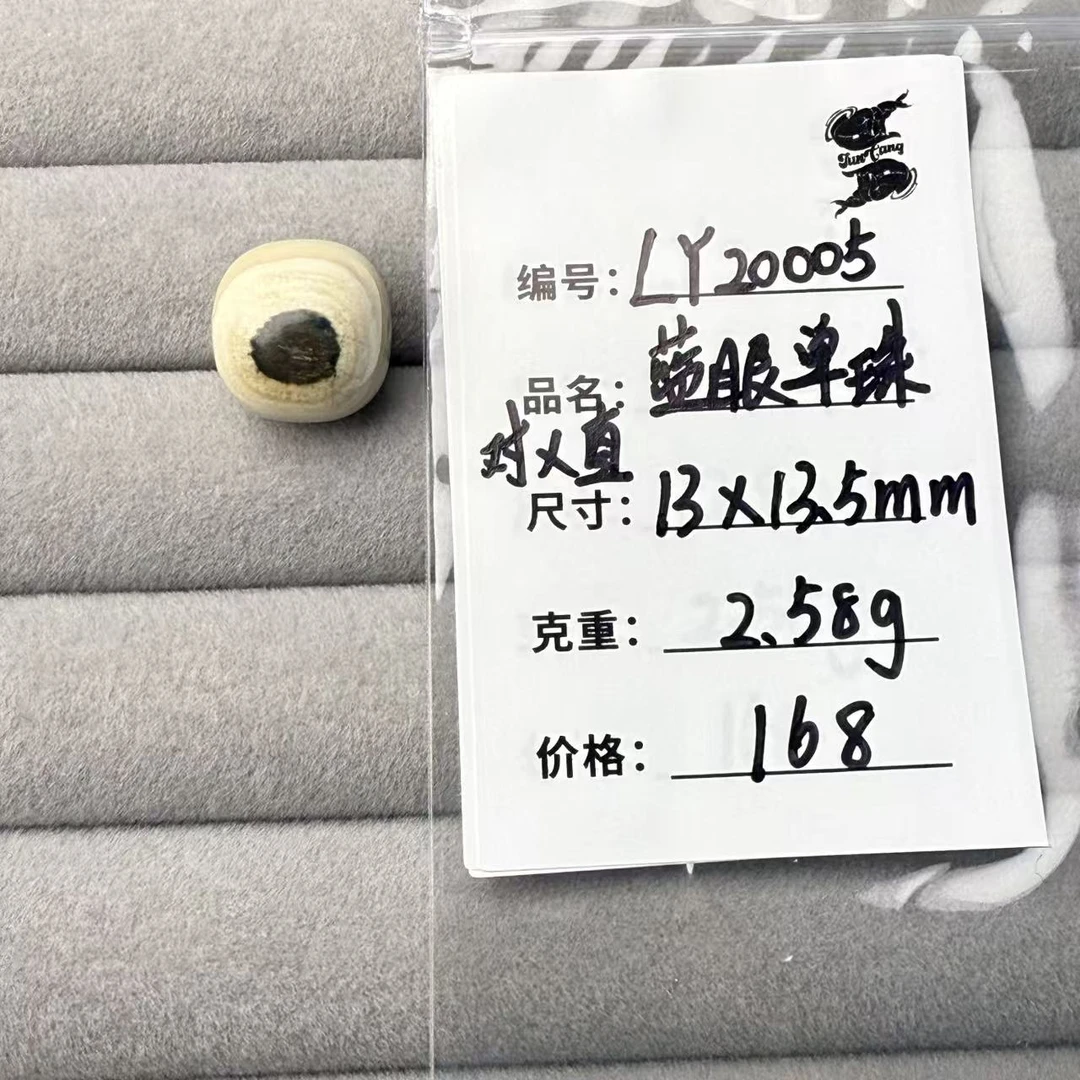 TunCang
编号：LY20005
品名：蓝眼单珠
对义直
尺寸：13X13.5mm
克重：2.58g
价格：168